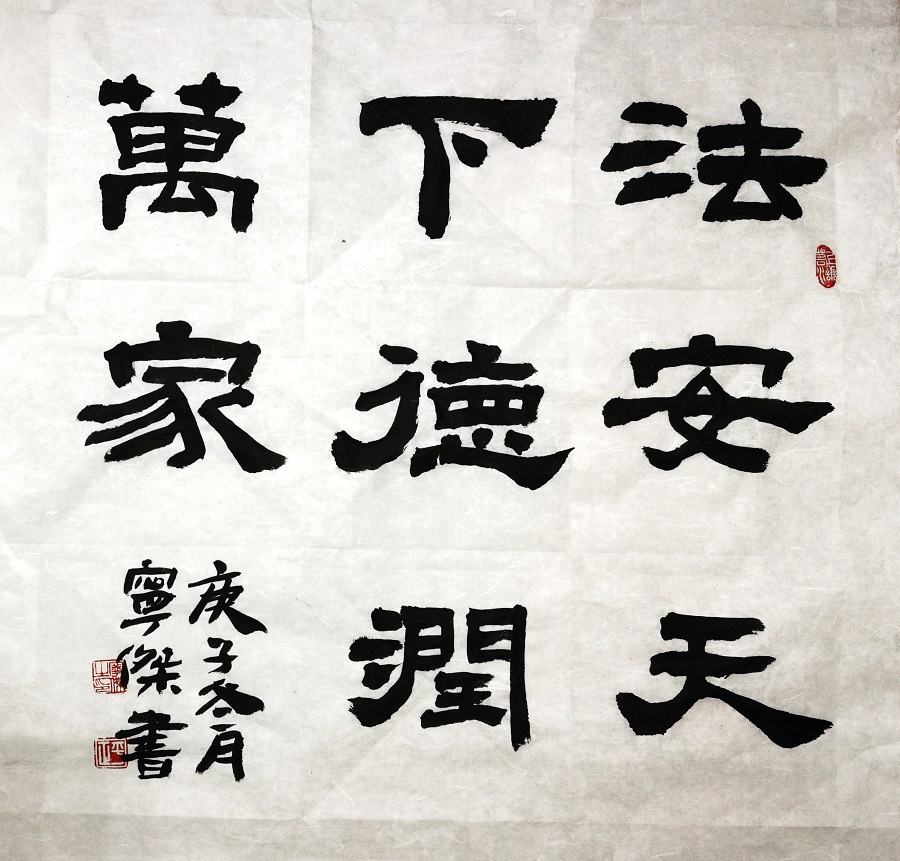 法安天
下德潤
萬家
庚子冬月
寧傑書